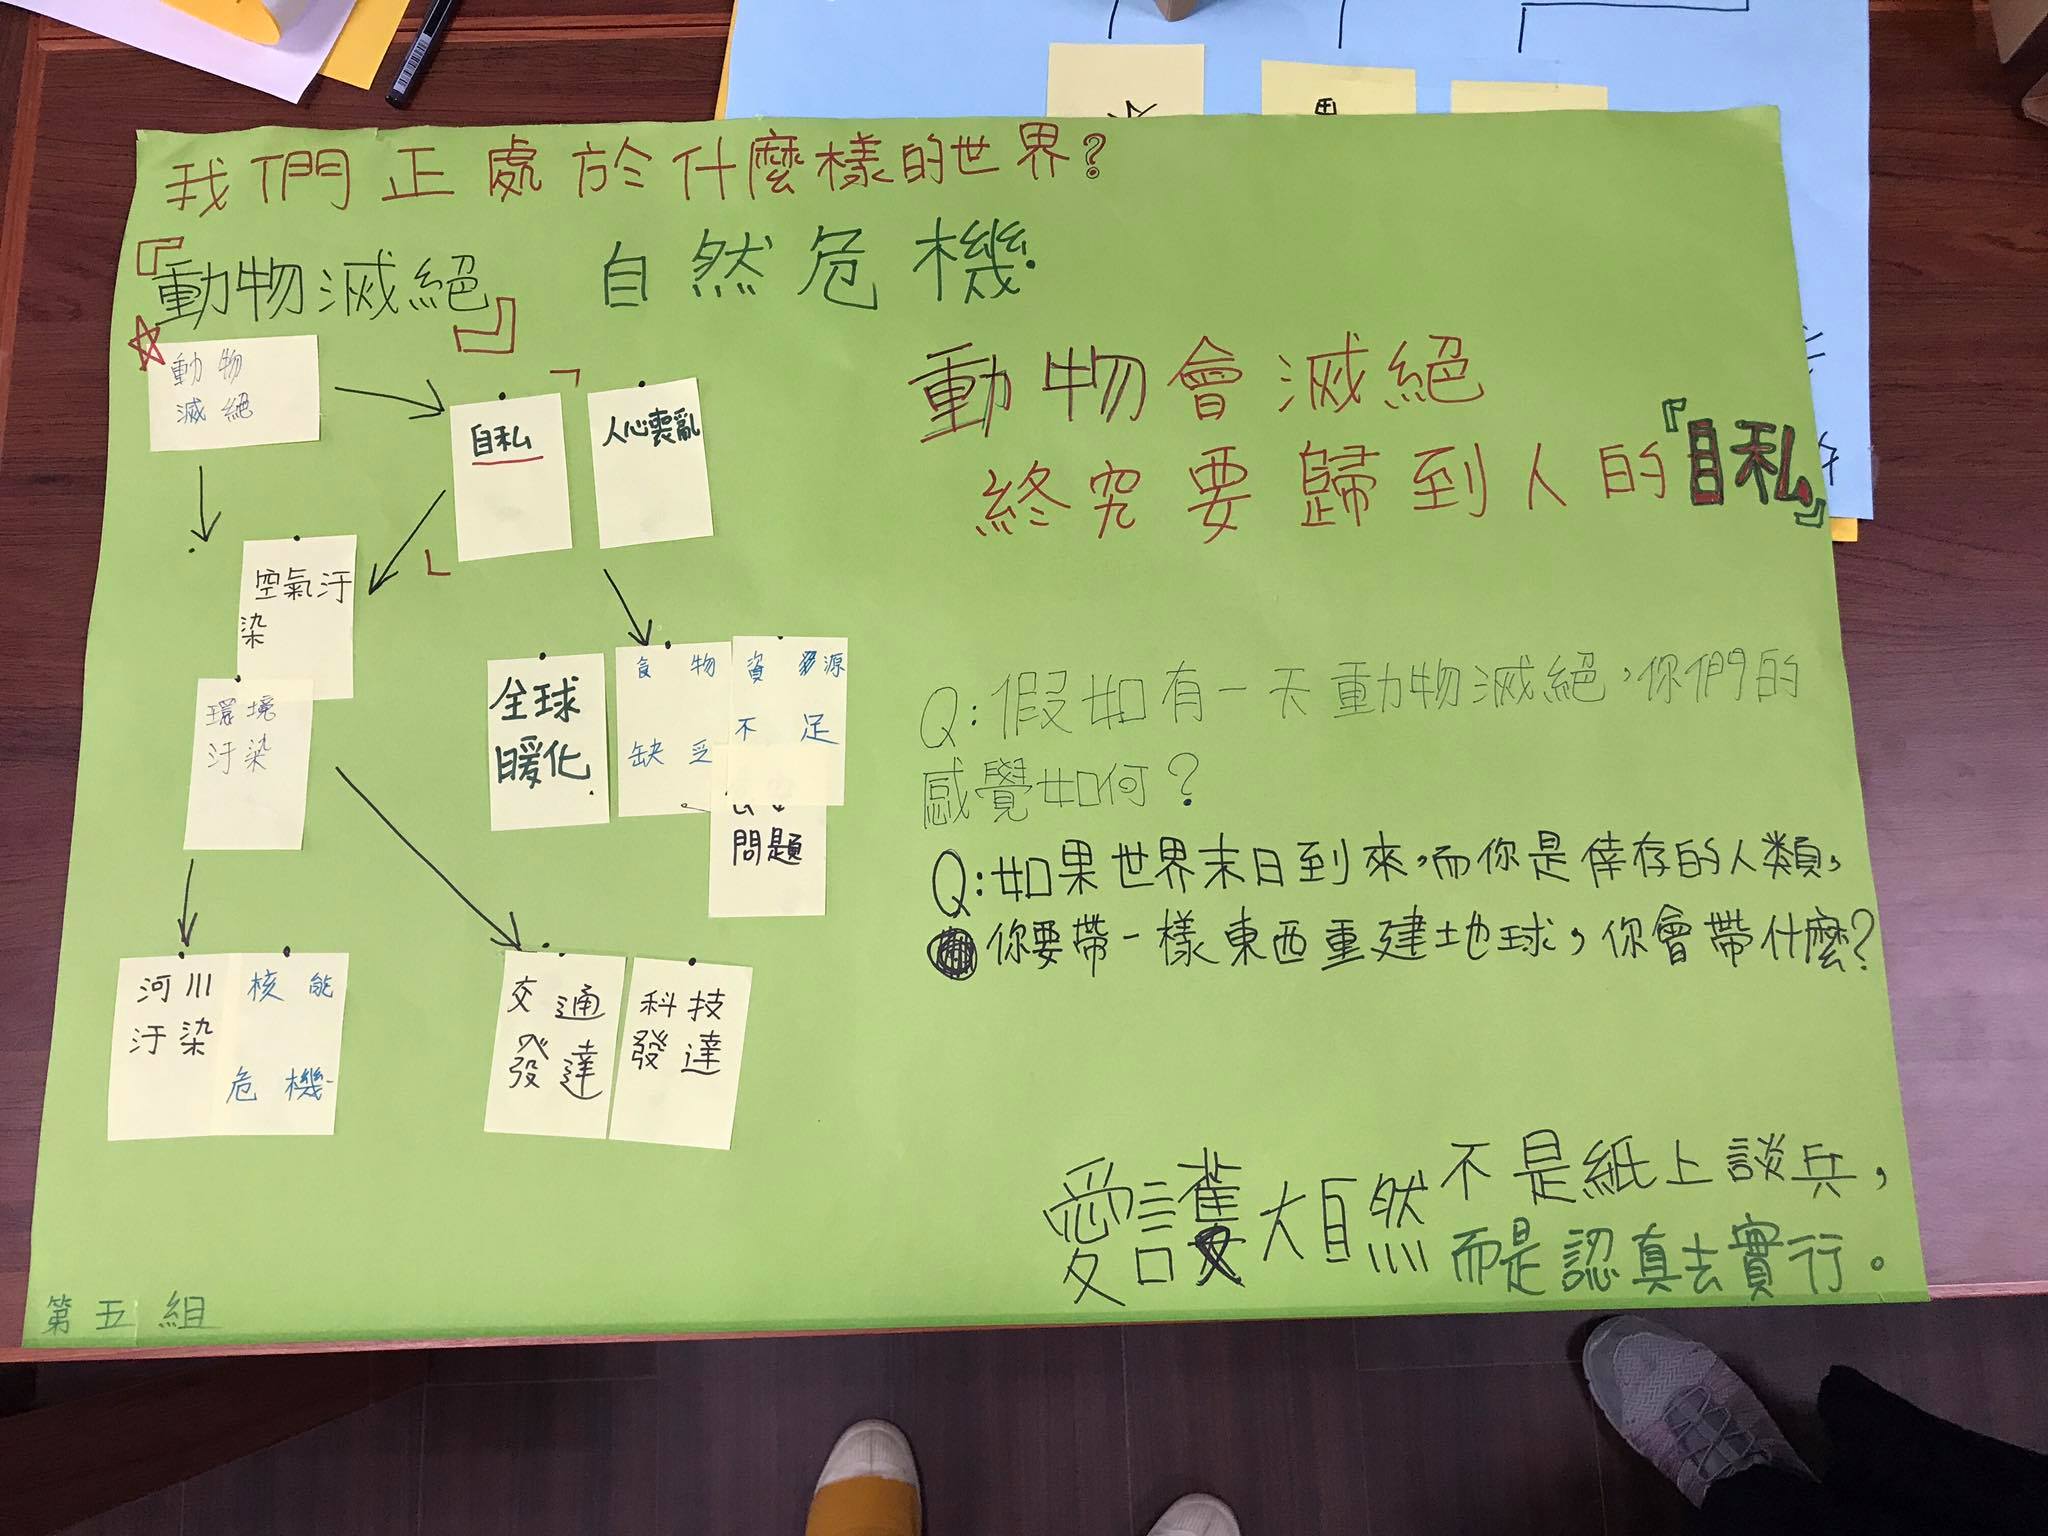 我們正處於什麼樣的世界?
『動物滅絕』
自然危機
動物
滅絕
自私
人心喪亂
空氣汙
染
環境
汙染
全球
暖化
食物
缺乏
資源
不足
問題
河川
汙染
核能
危機
交通
發達
科技
發達
動物會滅絕
終究要歸到人的『自私』
Q:假如有一天動物滅絕,你們的
感覺如何?
Q:如果世界末日到來,而你是倖存的人類,
你要帶一樣東西重建地球,你會帶什麼?
愛護大自然
不是紙上談兵,
而是認真去實行。
第五組